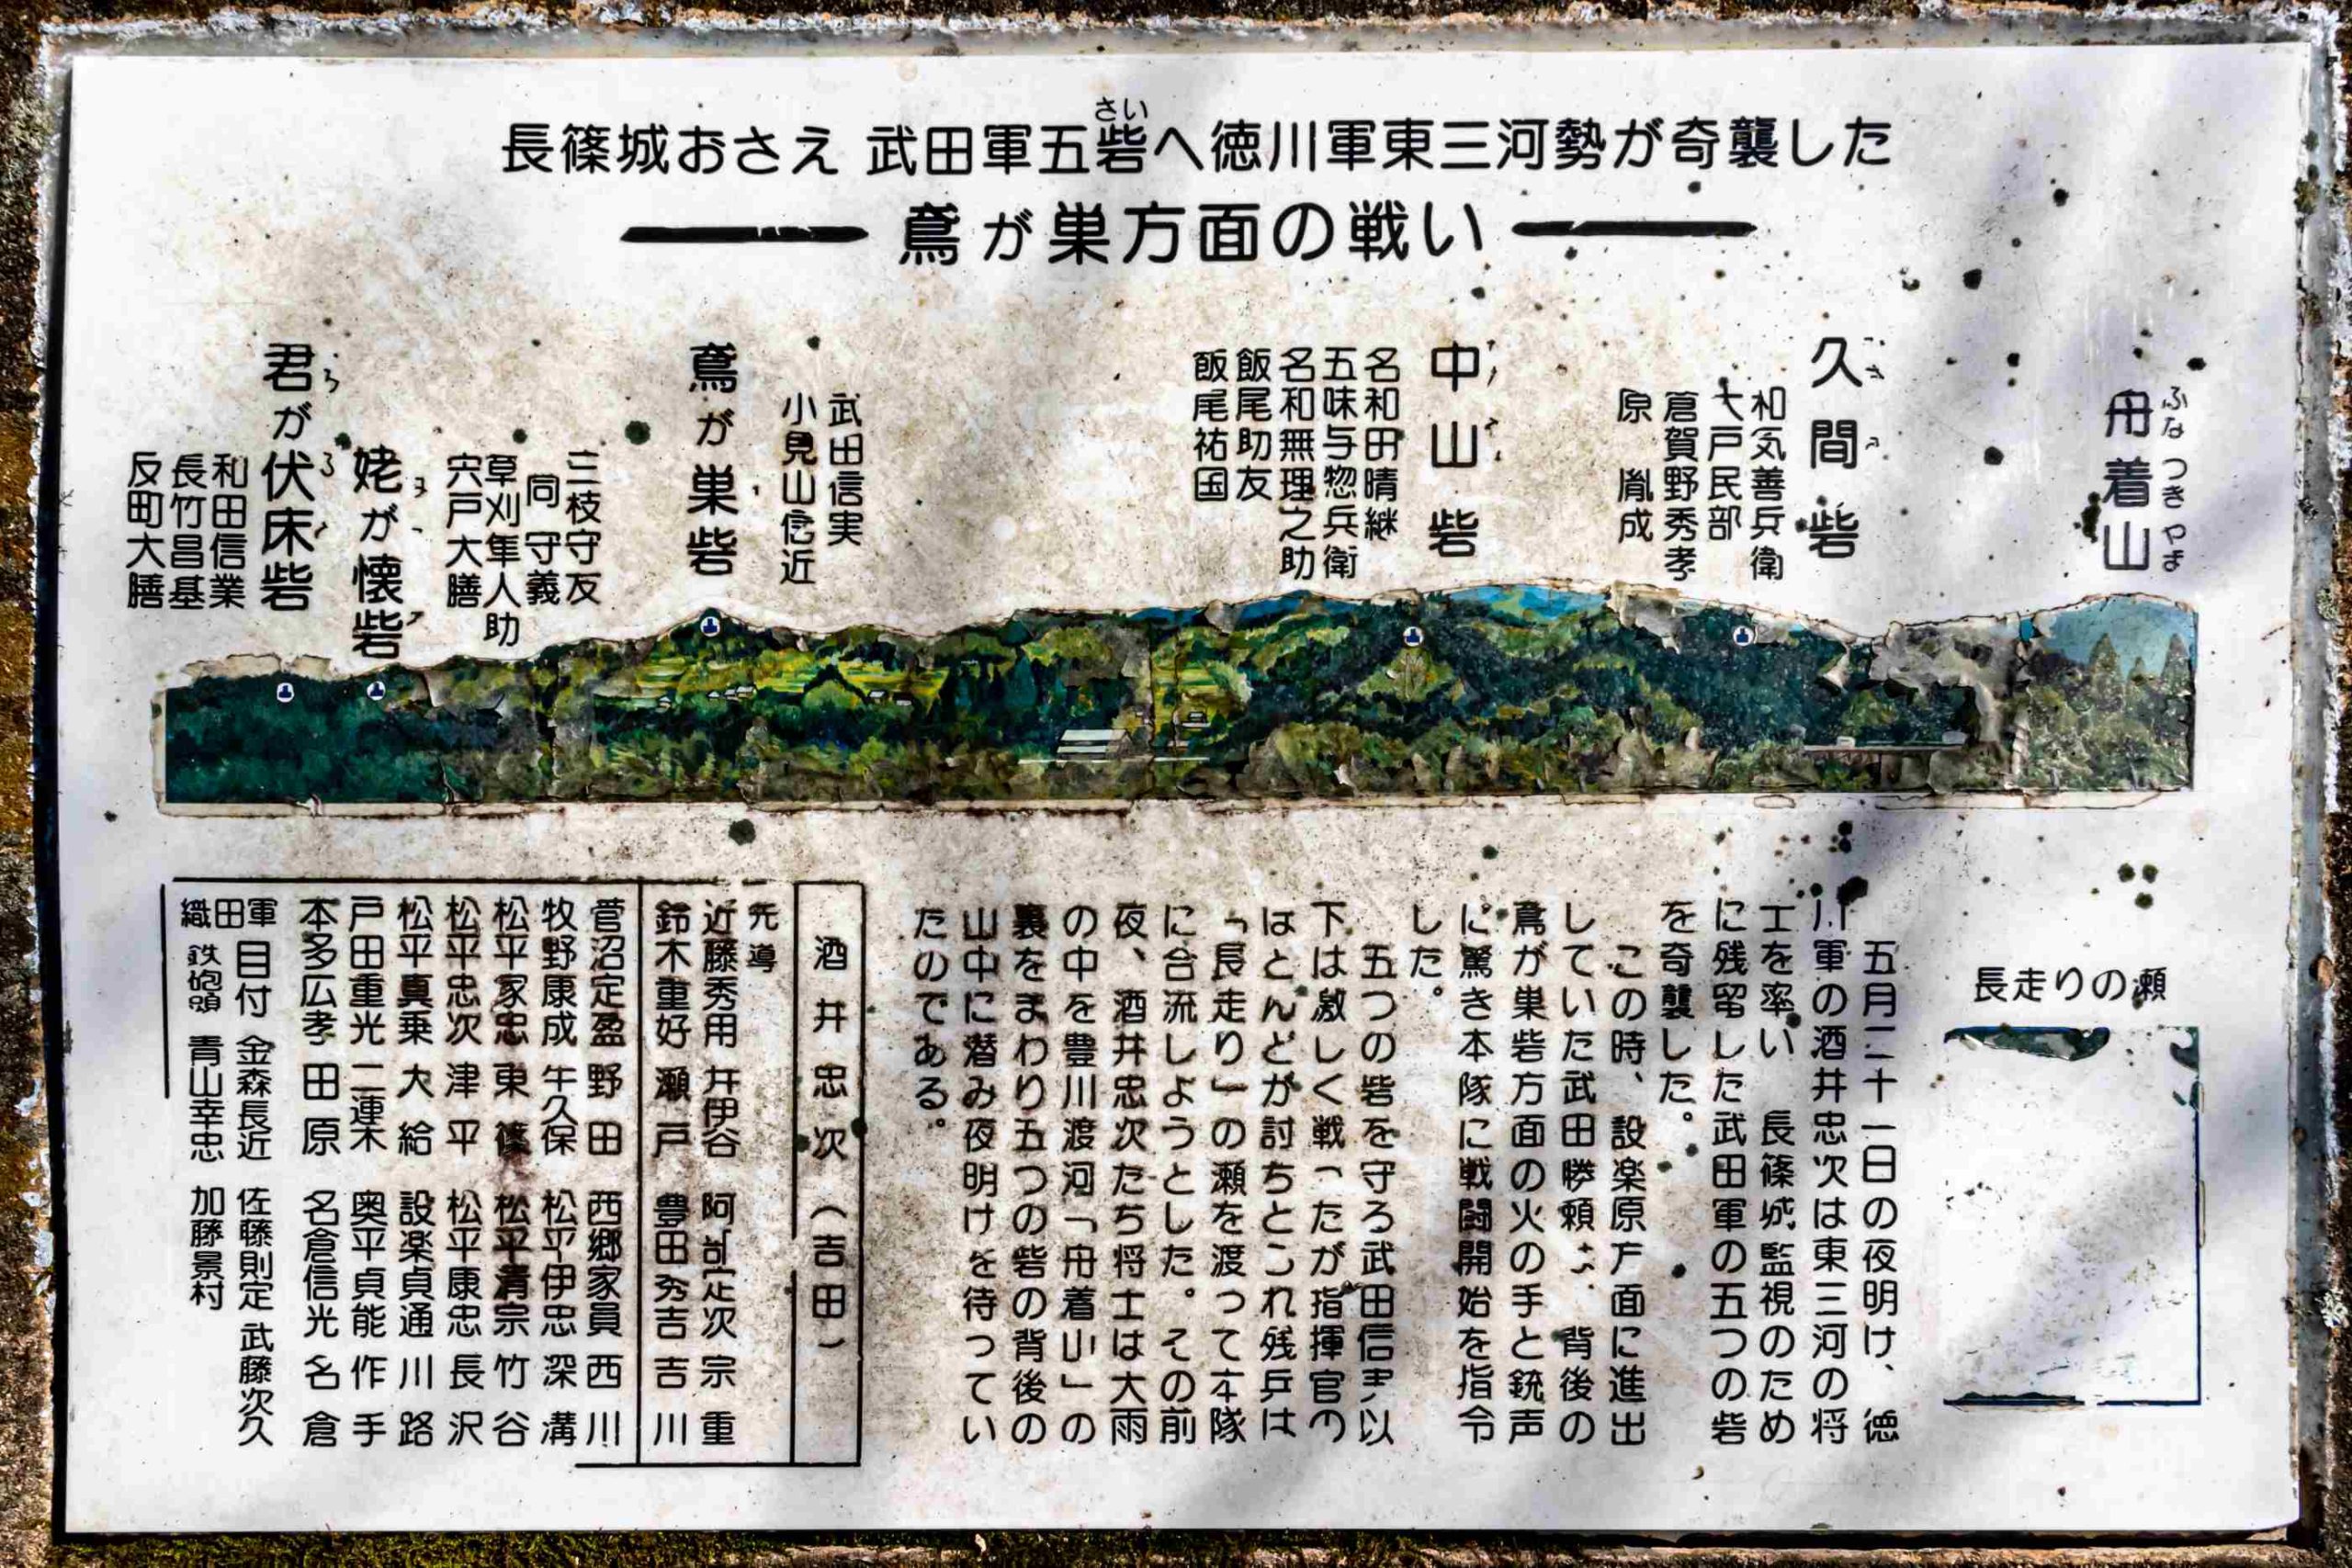 長篠城おさえ 武田軍五砦へ徳川軍東三河勢が奇襲した
さい
鳶が巣方面の戦い
舟着山
ふなつきやま
久間砦
和気善兵衛
七戸民部
倉賀野秀孝
原 胤成
中山砦
名和田晴継
五味与惣兵衛
名和無理之助
飯尾助友
飯尾祐国
武田信実
小見山信近
鳶が巣砦
三枝守友
同 守義
草刈隼人助
宍戸大膳
姥が懐砦
君が伏床砦
和田信業
長竹昌基
反町大膳
長走りの瀬
五月二十一日の夜明け、徳
川軍の酒井忠次は東三河の将
士を率い 長篠城監視のため
に残留した武田軍の五つの砦
を奇襲した。
この時、設楽原方面に進出
していた武田勝頼は、背後の
鳶が巣砦方面の火の手と銃声
に驚き本隊に戦闘開始を指令
した。
五つの砦を守る武田信実以
下は激しく戦ったが指揮官の
ほとんどが討ちとられ残兵は
「長走り」の瀬を渡って本隊
に合流しようとした。その前
夜、酒井忠次たち将士は大雨
の中を豊川渡河「舟着山」の
裏をまわり五つの砦の背後の
山中に潜み夜明けを待ってい
たのである。
酒井忠次（吉田）
先導
近藤秀用 井伊谷 阿部定次 宗重
鈴木重好 瀬戸 豊田秀吉 吉川
菅沼定盈 野田 西郷家員 西川
牧野康成 牛久保 松平伊忠 深溝
松平家忠 東篠 松平清宗 竹谷
松平忠次 津平 松平康忠 長沢
松平真乗 大給 設楽貞通 川路
戸田重光 二連木 奥平貞能 作手
本多広孝 田原 名倉信光 名倉
軍目付 金森長近 佐藤則定 武藤次久
織田鉄砲頭 青山幸忠 加藤景村